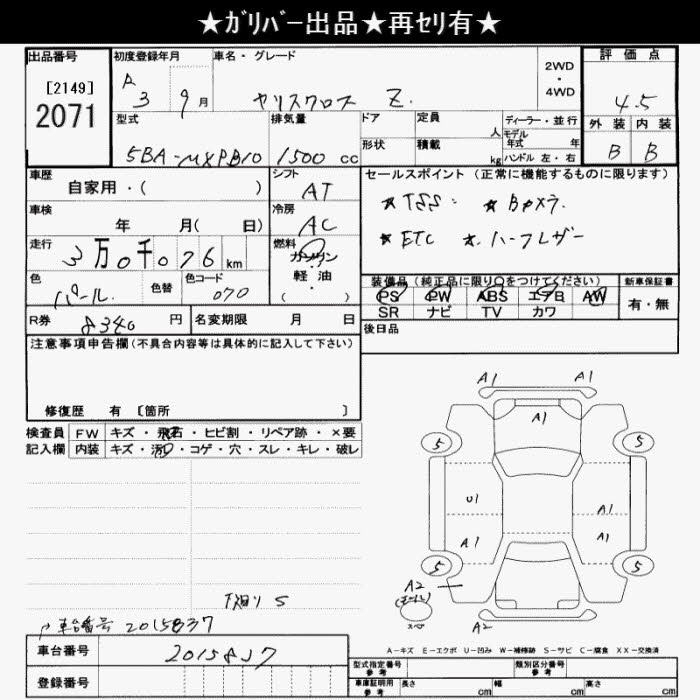 ★ｶﾞﾘﾊﾞｰ出品★再ｾﾘ有★
出品番号
[2149]
2071
初度登録年月
R 3 9 月
車名・グレード
ヤリスクロス Z.
2WD
・
4WD
評価点
4.5
外装 内装
B B
型式
5BA-MXPB10
排気量
1500 cc
ドア
定員
人
形状
積載
kg
ディーラー・並行
モデル
年式 年
ハンドル 左・右
車歴
自家用・( )
シフト
AT
車検
年 月( 日)
冷房
AC
走行
3万0千076 km
燃料
ガソリン
・
軽油
( )
色
パール.
色替
色コード
070
R券
8340 円
名変期限 月 日
セールスポイント (正常に機能するものに限ります)
★TSS ★Bカメラ
★ETC ★ハーフレザー
装備品(純正品に限り○をつけてください)
PS PW ABS エアB AW
SR ナビ TV カワ
新車保証書
有・無
後日品
注意事項申告欄(不具合内容等は具体的に記入して下さい)
修復歴 有 [箇所 ]
検査員 FW キズ・飛石・ヒビ割・リペア跡・×要
記入欄 内装 キズ・汚・コゲ・穴・スレ・キレ・破レ
下廻り S
車台番号 2015837
車台番号
2015837
登録番号
A1 A1
A1
5 5
U1 A1
A1 A1
5 5
A2
スペ
A2
A－キズ E－エクボ U－凹み W－補修跡 S－サビ C－腐食 XX－交換済
型式指定番号
参考
類別区分番号
参考
車庫証明用
参考
長さ cm 幅 cm 高さ cm